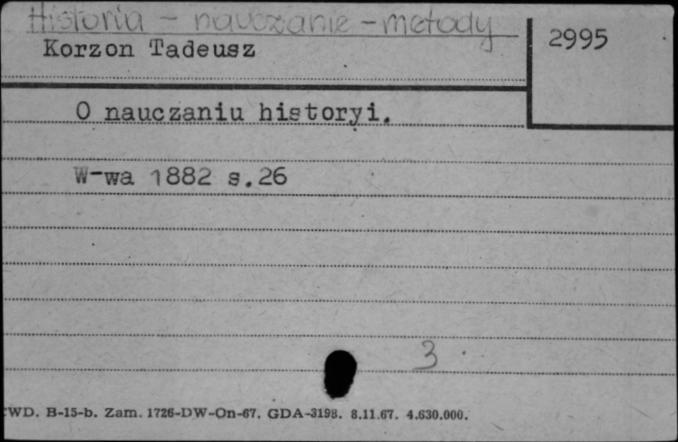 Historia - nauczanie - metody
Korzon Tadeusz
2995
O nauczaniu historyi.
W-wa 1882 s.26
3
WD. B-15-b. Zam. 1726-DW-On-67. GDA-3198. 8.11.67. 4.630.000.